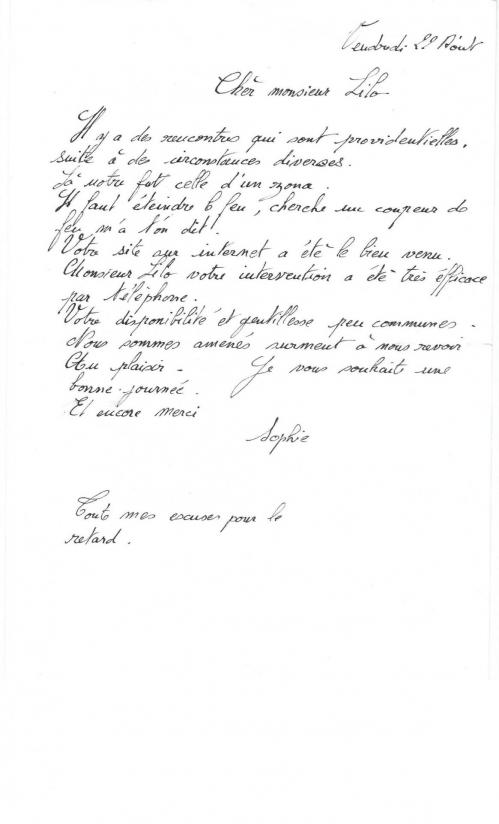 Vendredi 29 Août
Chèr monsieur Lilo
Il y a des rencontres qui sont providentielles,
suite à des circonstances diverses.
La notre fut celle d'un zona.
Il faut éteindre le feu, cherche un coupeur de
feu m'a t'on dit!
Votre site sur internet a été le bien venu.
Monsieur Lilo votre intervention a été très éfficace
par téléphone.
Votre disponibilité et gentillesse peu communes.
Nous sommes amenés surment à nous revoir
Au plaisir - Je vous souhaite une
bonne journée.
Et encore merci
Sophie
Toute mes excuses pour le
retard.